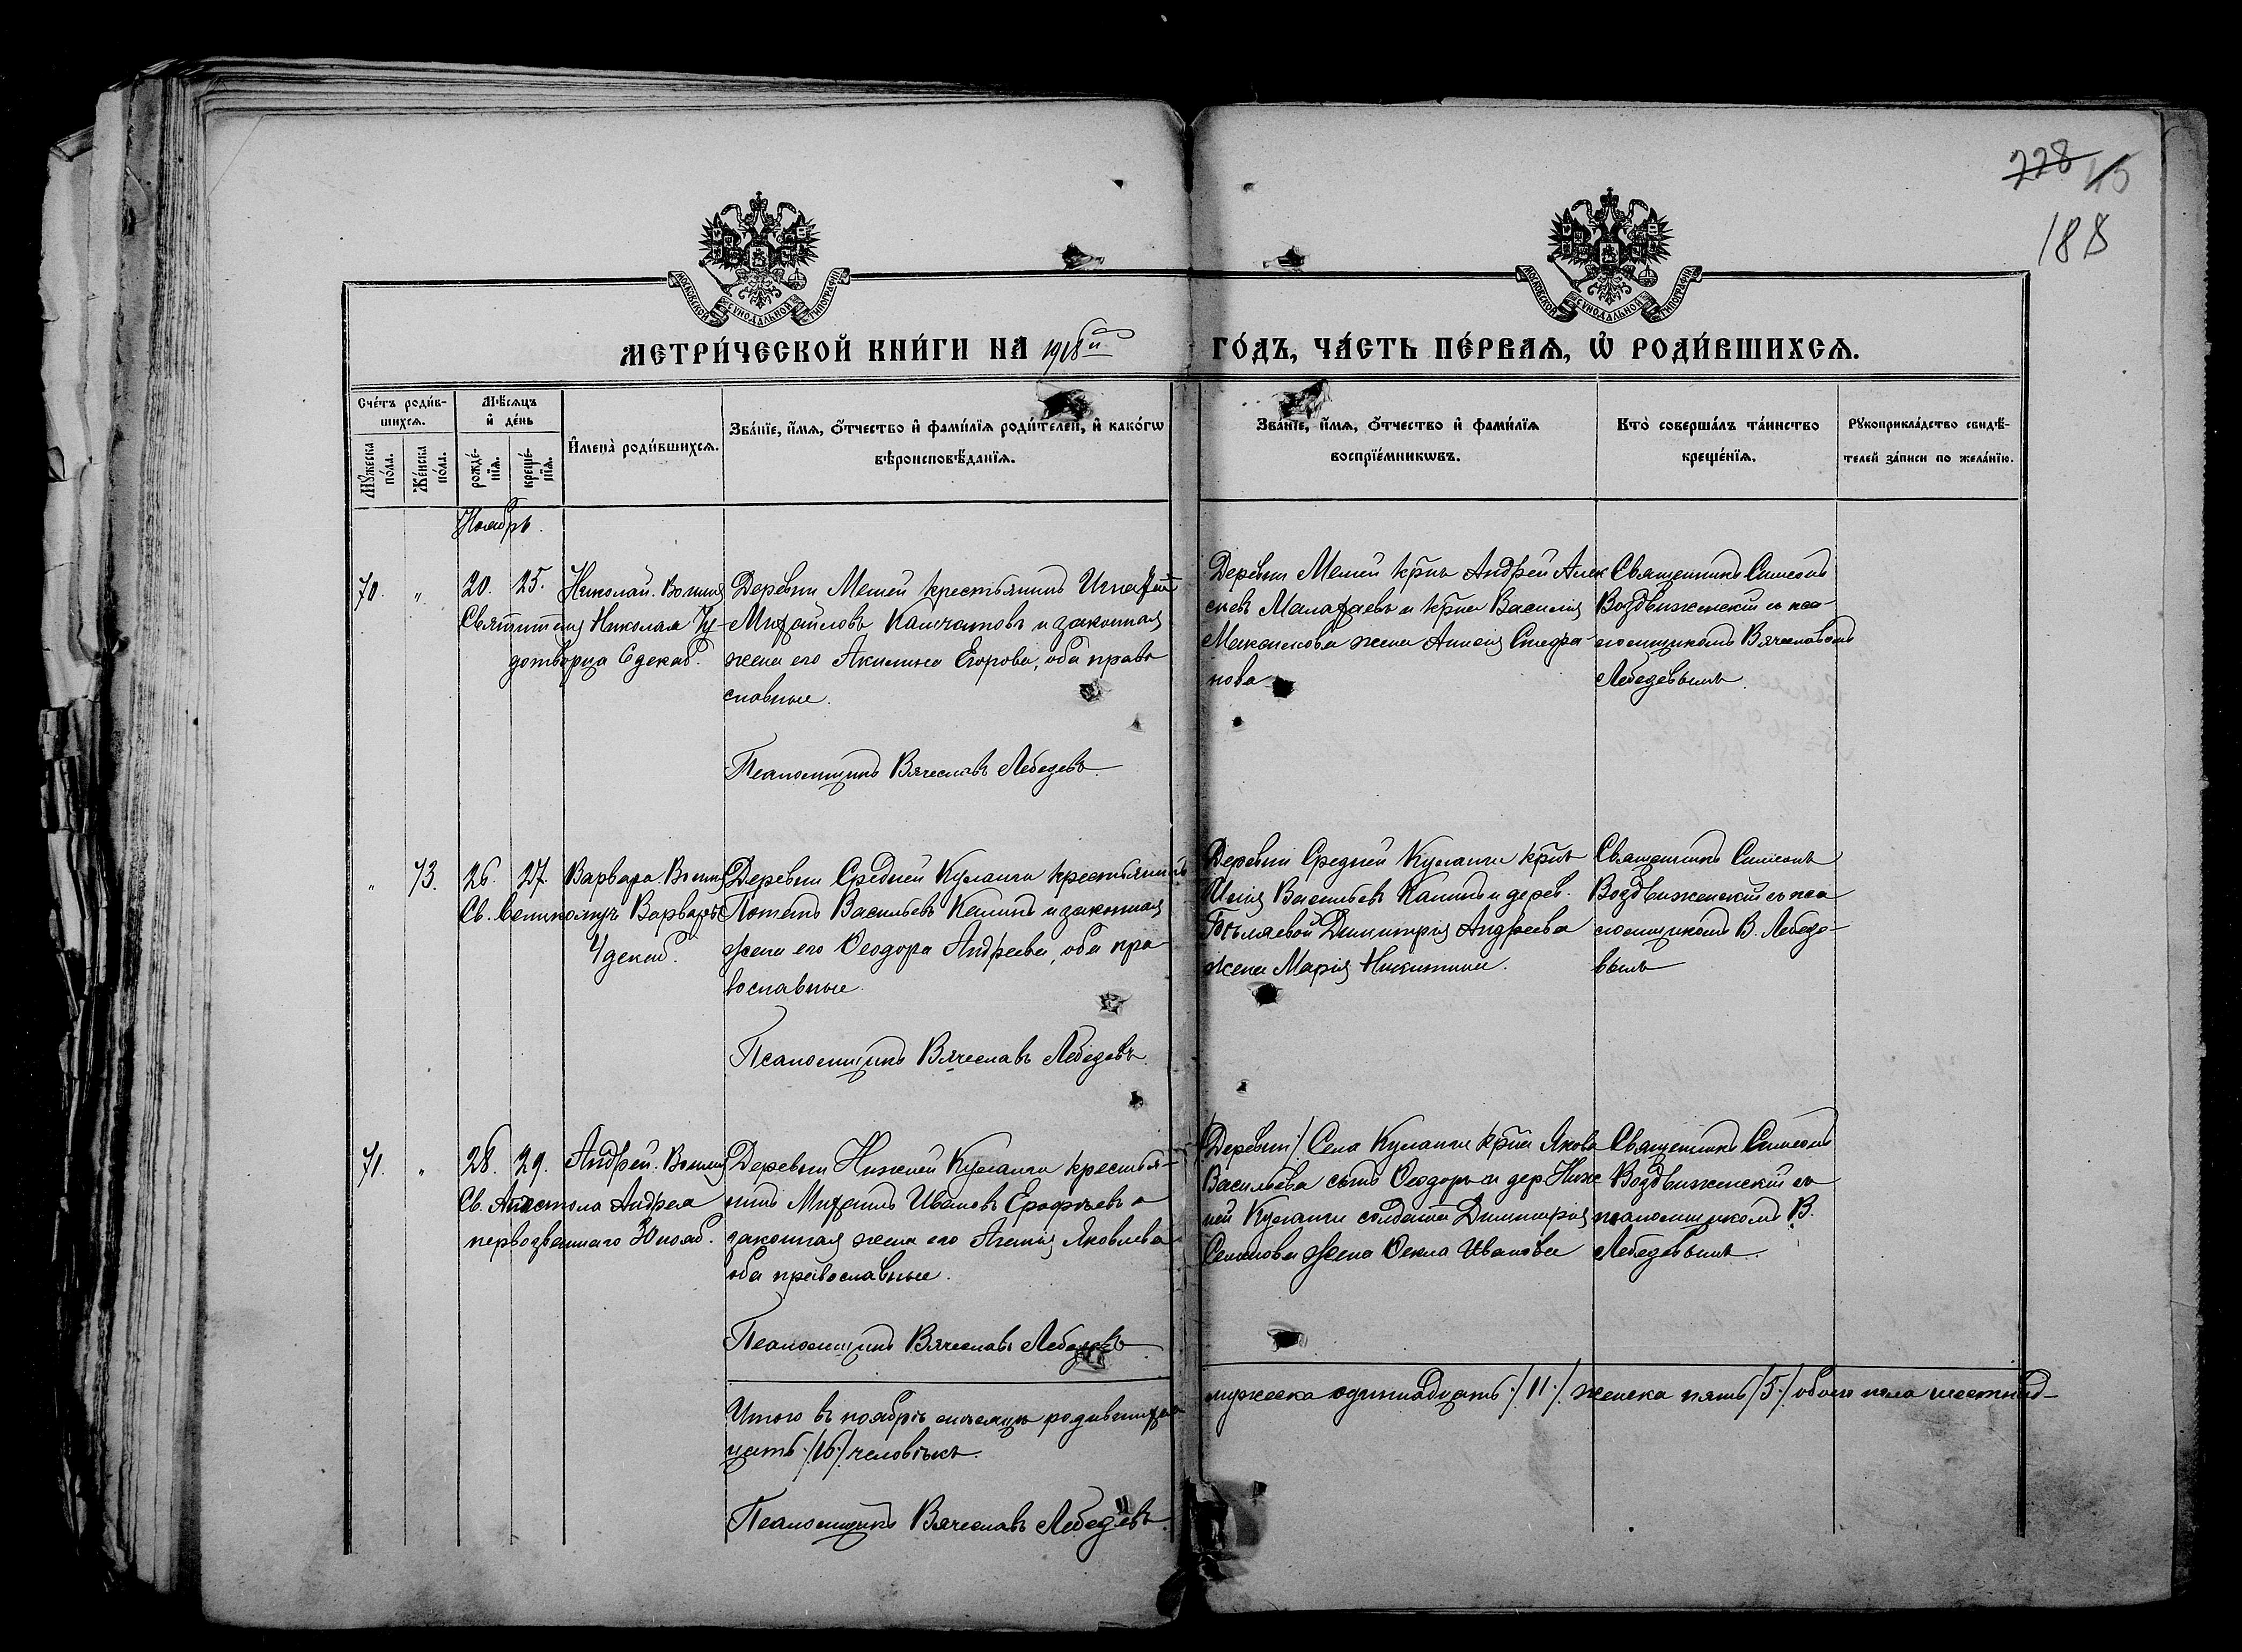 228 45
188
МОСКОВСКОЙ СѴНОДАЛЬНОЙ ТИПОГРАФІИ
МОСКОВСКОЙ СѴНОДАЛЬНОЙ ТИПОГРАФІИ
МЕТРИ́ЧЕСКОЙ КНИ́ГИ НА 1918й ГО́ДЪ, ЧА́СТЬ ПЕ́РВАѦ, Ѡ РОДИ́ВШИХСѦ.
Сче́тъ роди́в-
шихсѧ.
Мꙋжеска по́ла.
Же́нска по́ла.
Мѣ́сѧцъ
и҆ де́нь
рожде́-
нїѧ.
креще́-
нїѧ.
И҆мена̀ роди́вшихсѧ.
Зва́нїе, и҆́мѧ, ѻ҆́тчество и҆ фами́лїѧ роди́телей, и҆ како́гѡ
вѣроисповѣ́данїѧ.
Зва́нїе, и҆́мѧ, ѻ҆́тчество и҆ фами́лїѧ
воспрїе́мникѡвъ.
Кто̀ соверша́лъ та́инство
креще́нїѧ.
Рꙋкоприкла́дство свидѣ́-
телей за́писи по жела́нїю.
Ноябрь.
70. " 20. 25. Николай. Во имя
Святителя Николая Чу-
дотворца 6 декаб.
Деревни Мемей крестьянинъ Игнатій
Михайловъ Камчатовъ и законная
жена его Акилина Егорова, оба право
славные.
Псаломщикъ Вячеславъ Лебедевъ.
Деревни Мемей крнъ Андрей Алек
сеевъ Малафаевъ и крна Василія
Максимова жена Анисія Стефа-
нова
Священникъ Симеонъ
Воздвиженскій съ пса-
ломщикомъ Вячеславомъ
Лебедевымъ
" 73. 26. 27. Варвара. Во имя
Св. Великомуч. Варвары
4 декаб.
Деревни Средней Куланги крестьянинъ
Потапъ Васильевъ Калинъ и законная
жена его Ѳеодора Андреева, оба пра
вославные.
Псаломщикъ Вячеславъ Лебедевъ
Деревни Средней Куланги крнъ
Илія Васильевъ Калинъ и дерев.
Бѣляевой Димитрія Андреева
жена Марія Никитина.
Священникъ Симеонъ
Воздвиженскій съ пса
ломщикомъ В. Лебеде-
вымъ
71. " 28. 29. Андрей. Во имя
Св. Апостола Андрея
первозваннаго 30 нояб.
Деревни Нижней Куланги крестья-
нинъ Михаилъ Ивановъ Ерофѣевъ и
законная жена его Агапія Яковлева
оба православные.
Псаломщикъ Вячеславъ Лебедевъ
/Деревни/ Села Куланги крна Якова
Васильева сынъ Ѳеодоръ и дер Ниж
ней Куланги солдата Димитрія
Семенова жена Ѳекла Иванова
Священникъ Симеонъ
Воздвиженскій съ
псаломщикомъ В.
Лебедевымъ.
Итого въ ноябрѣ мѣсяцѣ родившихся мужеска одиннадцать /11/ женска пять /5/ обоего пола шестнад-
цать /16/ человѣкъ.
Псаломщикъ Вячеславъ Лебедевъ.